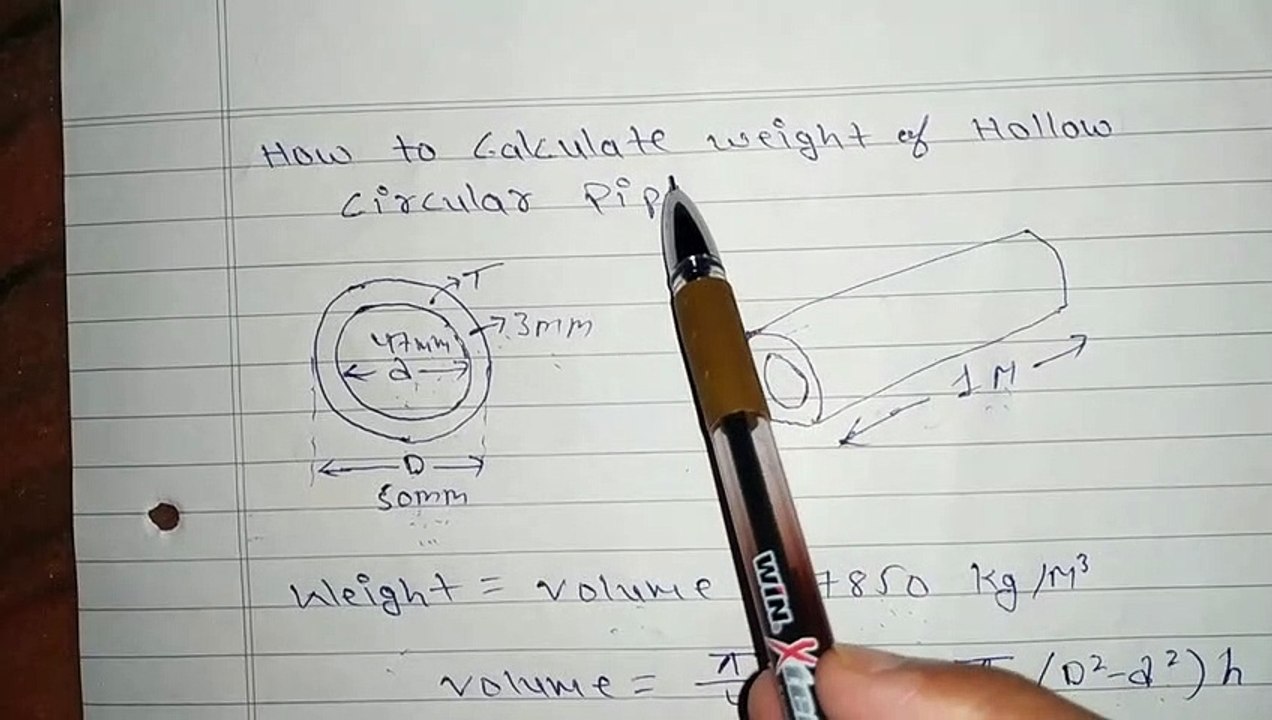 How to Calculate weight of Hollow
Circular Pip
T
47mm
3mm
d
1M
D
50mm
Weight = Volume 7850 Kg/M³
Volume = π (D²-d²) h
WIN